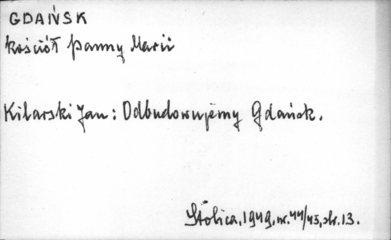 GDAŃSK
kościół Panny Marii
Kilarski Jan: Odbudowujemy Gdańsk.
Stolica, 1949, nr. 44/45, str. 13.